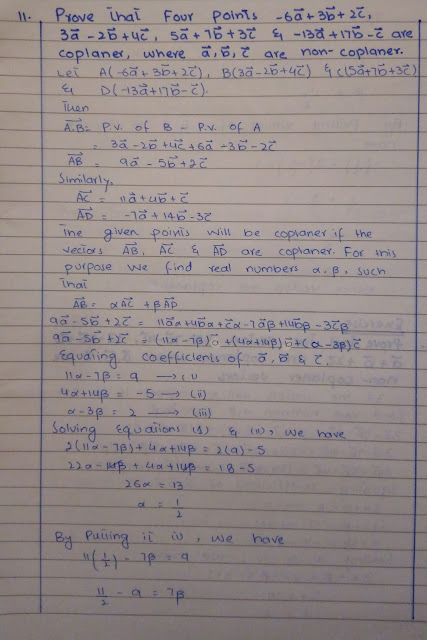 11. Prove that Four Points -6a⃗ + 3b⃗ + 2c⃗,
3a⃗ - 2b⃗ + 4c⃗, 5a⃗ + 7b⃗ + 3c⃗ & -13a⃗ + 17b⃗ - c⃗ are
coplaner, where a⃗, b⃗, c⃗ are non-coplaner.
Let A(-6a⃗ + 3b⃗ + 2c⃗), B(3a⃗ - 2b⃗ + 4c⃗) & C(5a⃗ + 7b⃗ + 3c⃗)
& D(-13a⃗ + 17b⃗ - c⃗).
Then
A⃗B⃗ = P.V. of B - P.V. of A
= 3a⃗ - 2b⃗ + 4c⃗ + 6a⃗ - 3b⃗ - 2c⃗
A⃗B⃗ = 9a⃗ - 5b⃗ + 2c⃗
Similarly,
A⃗C⃗ = 11a⃗ + 4b⃗ + c⃗
A⃗D⃗ = -7a⃗ + 14b⃗ - 3c⃗
The given points will be coplaner if the
vectors A⃗B⃗, A⃗C⃗ & A⃗D⃗ are coplaner. For this
purpose we find real numbers α, β, such
that
A⃗B⃗ = αA⃗C⃗ + βA⃗D⃗
9a⃗ - 5b⃗ + 2c⃗ = 11a⃗α + 4b⃗α + c⃗α - 7a⃗β + 14b⃗β - 3c⃗β
9a⃗ - 5b⃗ + 2c⃗ = (11α - 7β)a⃗ + (4α + 14β)b⃗ + (α - 3β)c⃗
Equating coefficients of a⃗, b⃗ & c⃗.
11α - 7β = 9 → (i)
4α + 14β = -5 → (ii)
α - 3β = 2 → (iii)
Solving Equations (1) & (ii), we have
2(11α - 7β) + 4α + 14β = 2(9) - 5
22α - 14β + 4α + 14β = 18 - 5
26α = 13
α = 1/2
By Putting it in, we have
11(1/2) - 7β = 9
11/2 - 9 = 7β